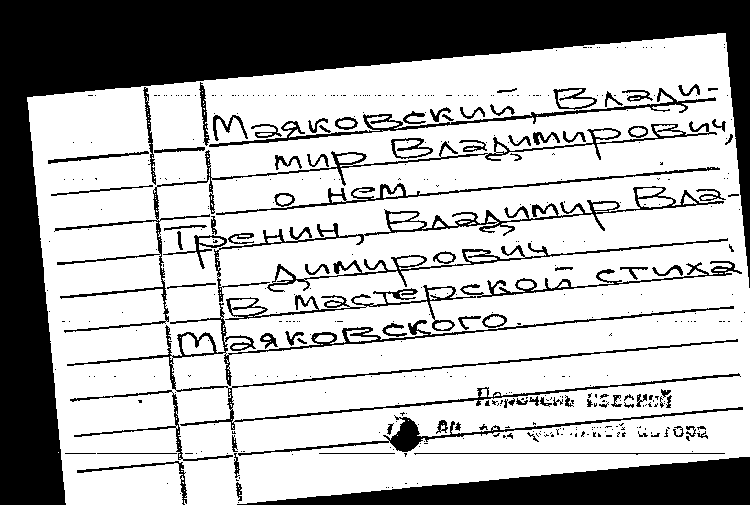 Маяковский, Влади-
мир Владимирович,
о нем.
Тренин, Владимир Вла-
димирович
В мастерской стиха
Маяковского.
Перечень изданий
см. под фамилией автора